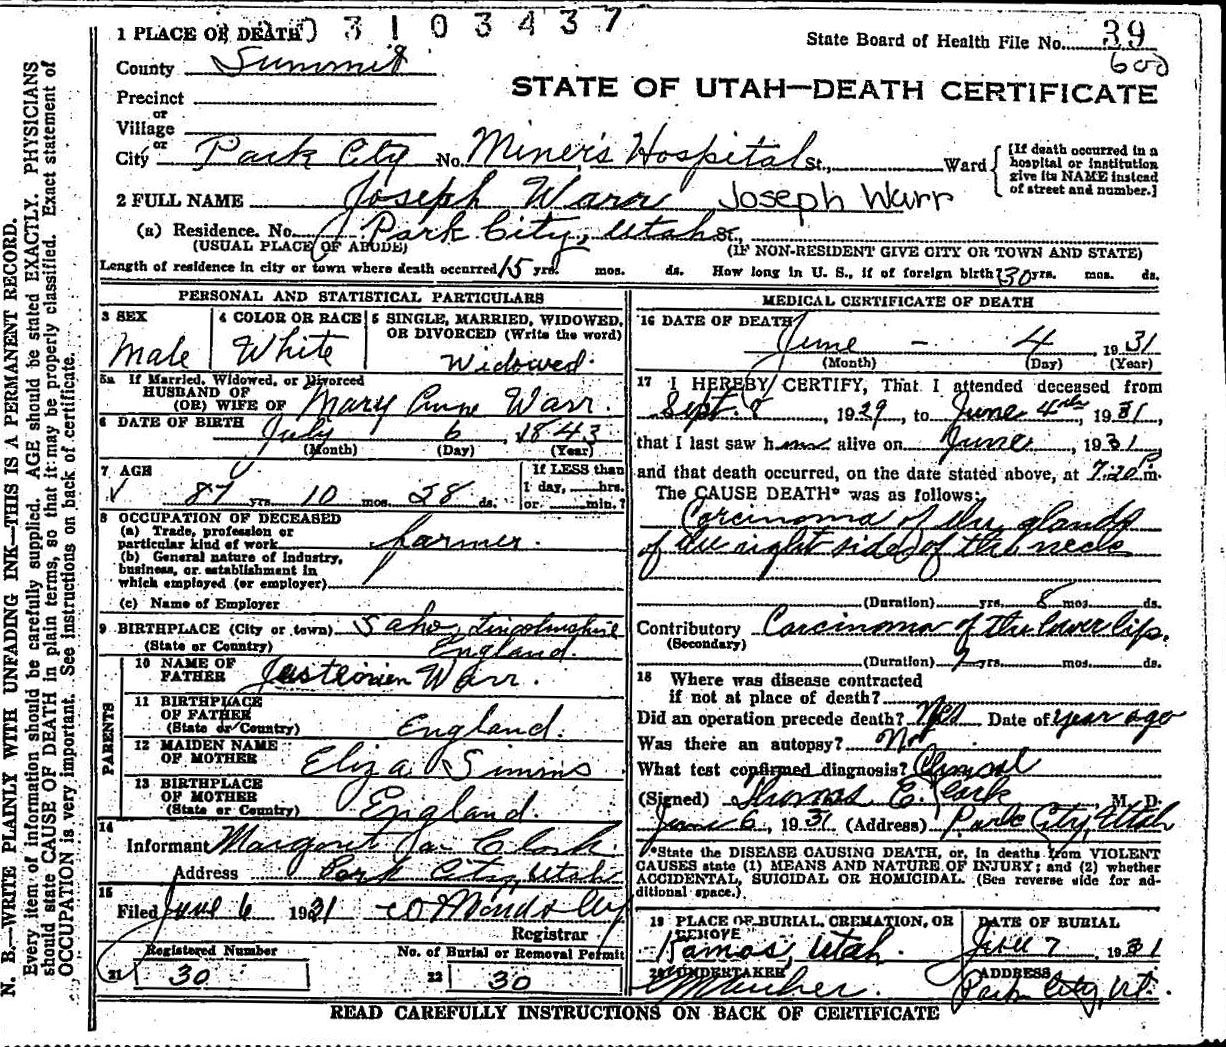 1 PLACE OF DEATH 0 3 1 0 3 4 3 7
State Board of Health File No. 39
600
County Summit
STATE OF UTAH—DEATH CERTIFICATE
Precinct
or
Village
or
City Park City No. Miner's Hospital St., Ward
[If death occurred in a hospital or institution give its NAME instead of street and number.]
2 FULL NAME Joseph Warr Joseph Warr
(a) Residence. No. Park City, Utah St.,
(USUAL PLACE OF ABODE) (IF NON-RESIDENT GIVE CITY OR TOWN AND STATE)
Length of residence in city or town where death occurred 15 yrs. mos. ds. How long in U. S., if of foreign birth? 30 yrs. mos. ds.
PERSONAL AND STATISTICAL PARTICULARS
3 SEX
Male
4 COLOR OR RACE
White
5 SINGLE, MARRIED, WIDOWED,
OR DIVORCED (Write the word)
Widowed.
5a If Married, Widowed, or Divorced
HUSBAND OF
(OR) WIFE OF Mary Anne Warr.
6 DATE OF BIRTH July 6, 1843
(Month) (Day) (Year)
7 AGE
87 yrs. 10 mos. 28 ds.
If LESS than
1 day, hrs.
or min.?
8 OCCUPATION OF DECEASED
(a) Trade, profession or
particular kind of work farmer.
(b) General nature of industry,
business, or establishment in
which employed (or employer)
(c) Name of Employer
9 BIRTHPLACE (City or town) Lincolnshire
(State or Country) England.
PARENTS
10 NAME OF
FATHER Warr.
11 BIRTHPLACE
OF FATHER
(State or Country) England.
12 MAIDEN NAME
OF MOTHER Eliza Simms
13 BIRTHPLACE
OF MOTHER
(State or Country) England.
14
Informant Margaret Clark
Address Park City, Utah
15
Filed June 6 1931
Registrar
Registered Number
21 30
No. of Burial or Removal Permit
22 30
MEDICAL CERTIFICATE OF DEATH
16 DATE OF DEATH
June - 4, 1931
(Month) (Day) (Year)
17 I HEREBY CERTIFY, That I attended deceased from
Sept. 8 1929, to June 4th, 1931,
that I last saw him alive on June, 1931
and that death occurred, on the date stated above, at 7.20 P m.
The CAUSE DEATH* was as follows:
Carcinoma of the glands
of the right side of the neck
(Duration) yrs. 8 mos. ds.
Contributory Carcinoma of the lower lip.
(Secondary)
(Duration) yrs. mos. ds.
18 Where was disease contracted
if not at place of death?
Did an operation precede death? Yes Date of year ago
Was there an autopsy? No.
What test confirmed diagnosis? Clinical
(Signed) Thomas E. M. D.
June 6, 1931 (Address) Park City, Utah
*State the DISEASE CAUSING DEATH, or, in deaths from VIOLENT
CAUSES state (1) MEANS AND NATURE OF INJURY; and (2) whether
ACCIDENTAL, SUICIDAL OR HOMICIDAL. (See reverse side for ad-
ditional space.)
19 PLACE OF BURIAL, CREMATION, OR
REMOVE
Kamas, Utah.
DATE OF BURIAL
June 7 1931
20 UNDERTAKER
ADDRESS
Park City, Ut.
READ CAREFULLY INSTRUCTIONS ON BACK OF CERTIFICATE
N. B.—WRITE PLAINLY WITH UNFADING INK—THIS IS A PERMANENT RECORD.
Every item of information should be carefully supplied. AGE should be stated EXACTLY. PHYSICIANS
should state CAUSE OF DEATH in plain terms, so that it may be properly classified. Exact statement of
OCCUPATION is very important. See instructions on back of certificate.